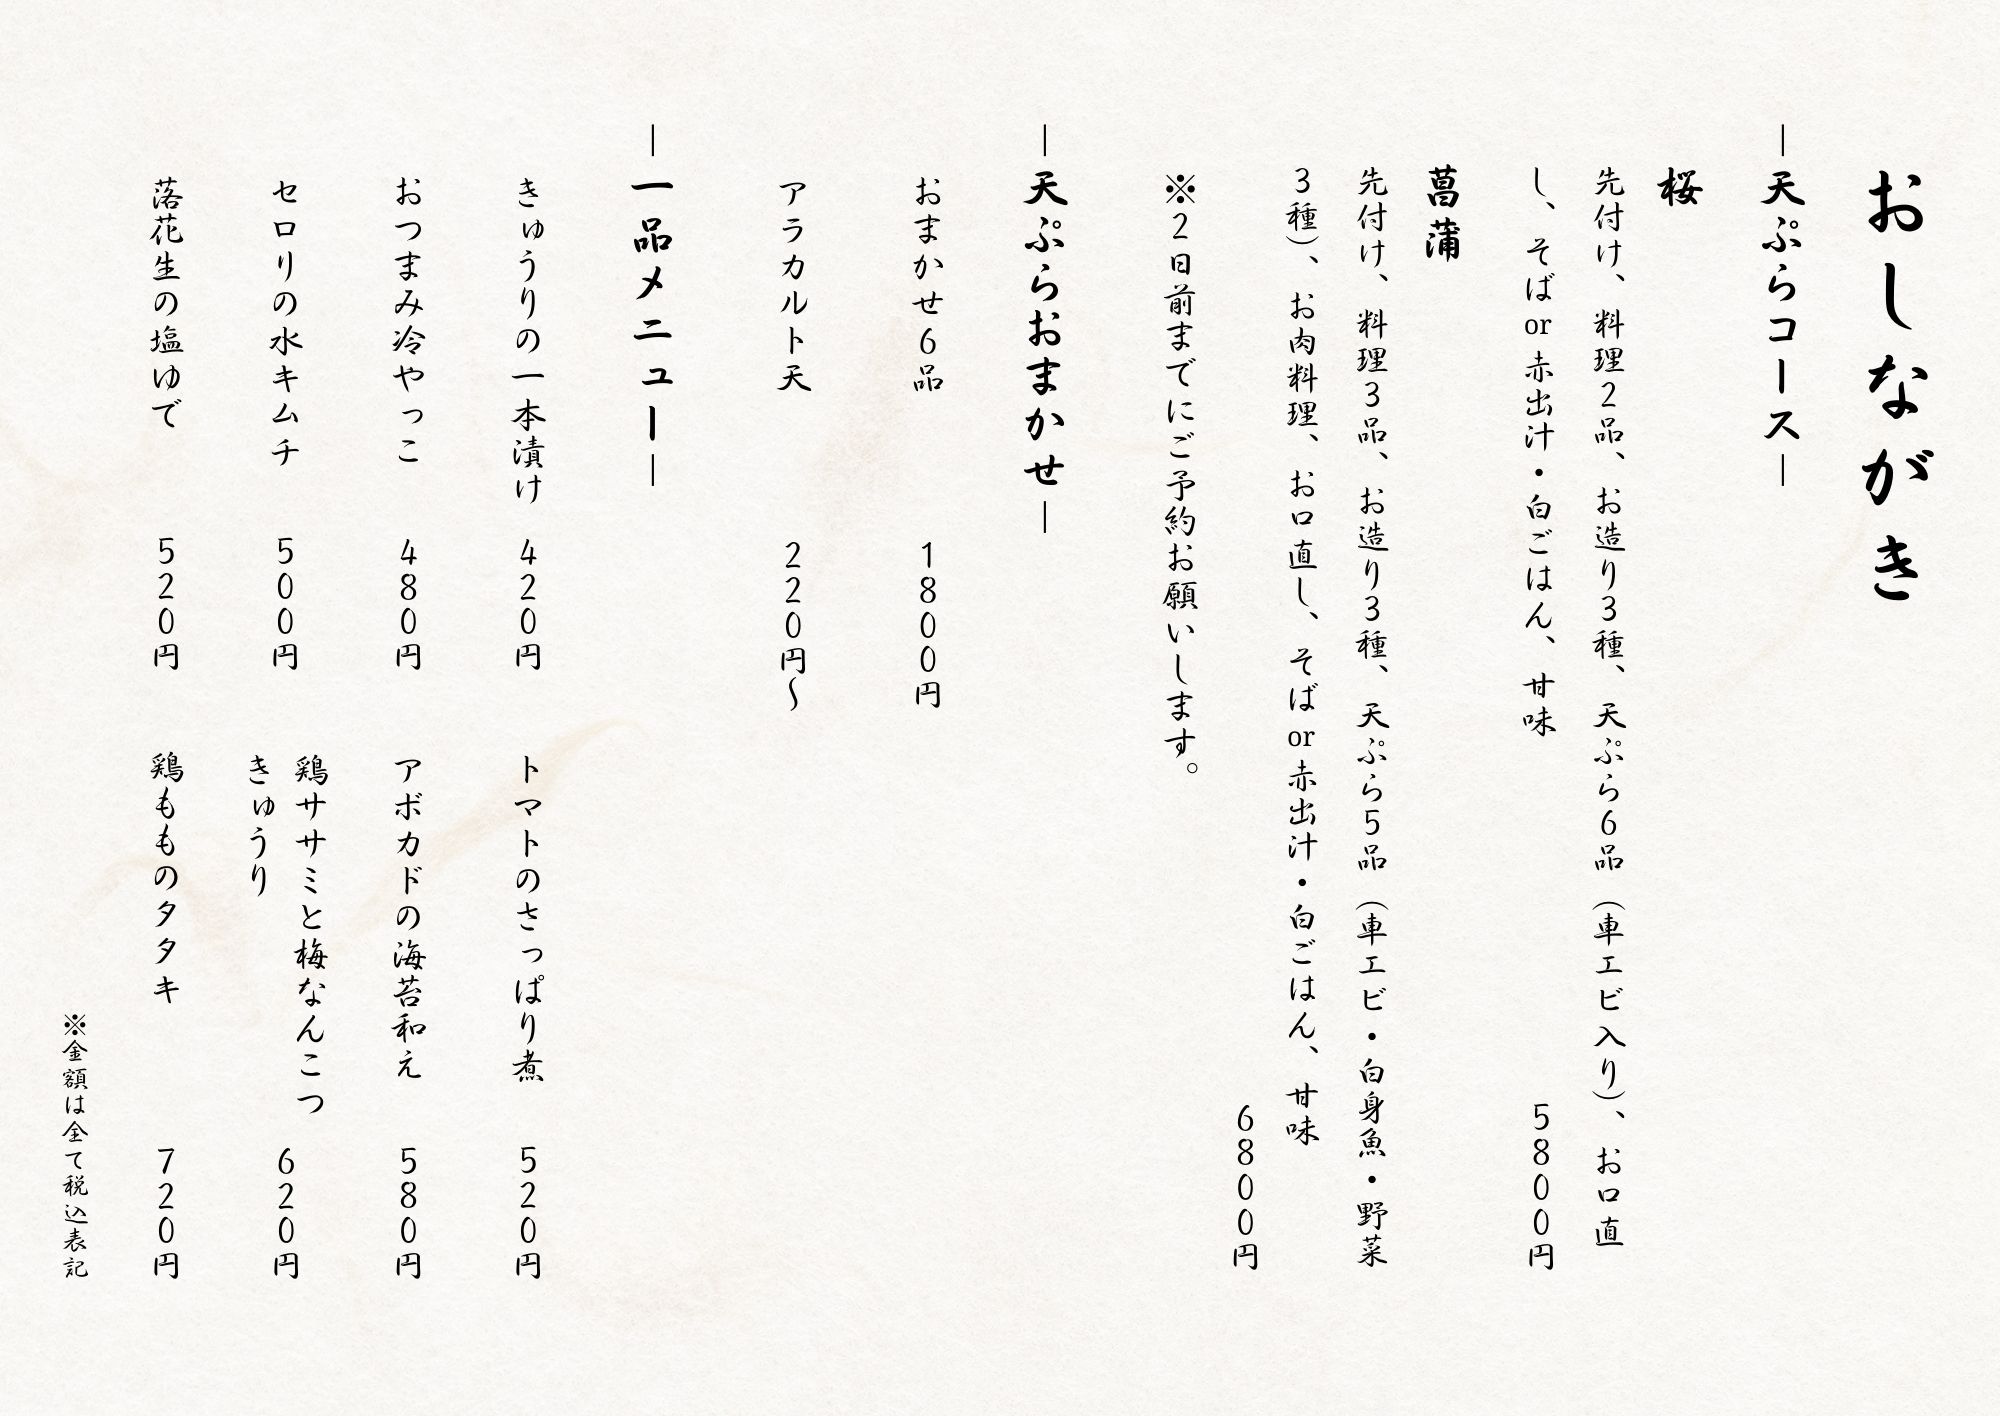 おしながき
―天ぷらコース―
桜
先付け、料理2品、お造り3種、天ぷら6品（車エビ入り）、お口直
し、そばor赤出汁・白ごはん、甘味
5800円
菖蒲
先付け、料理3品、お造り3種、天ぷら5品（車エビ・白身魚・野菜
3種）、お肉料理、お口直し、そばor赤出汁・白ごはん、甘味
6800円
※2日前までにご予約お願いします。
―天ぷらおまかせ―
おまかせ6品 1800円
アラカルト天 220円〜
―一品メニュー―
きゅうりの一本漬け 420円
おつまみ冷やっこ 480円
セロリの水キムチ 500円
落花生の塩ゆで 520円
トマトのさっぱり煮 520円
アボカドの海苔和え 580円
鶏ササミと梅なんこつ
きゅうり 620円
鶏もものタタキ 720円
※金額は全て税込表記